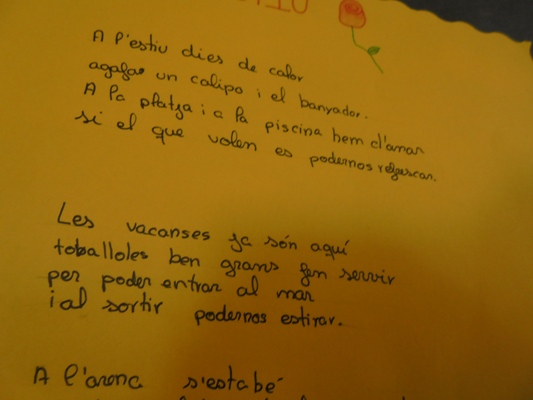 A l'estiu dies de calor
agafas un calipo i el banyador.
A la platja i a la piscina hem d'anar
si el que volen es podernos refrescar.
Les vacanses ja són aquí
toballoles ben grans fen servir
per poder entrar al mar
i al sortir podernos estirar.
A l'arena s'esta bé